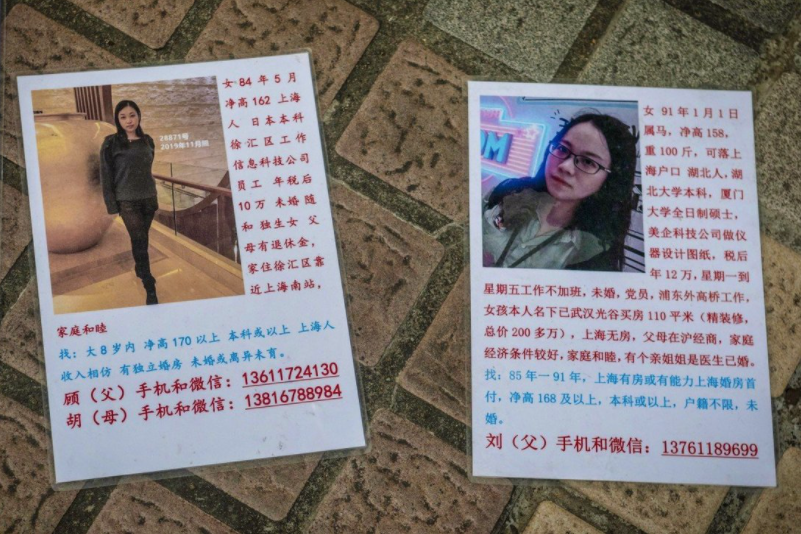 28871号
2019年11月照
女 84 年 5 月
净高 162 上海
人 日本本科
徐汇区工作
信息科技公司
员工 年税后
10 万 未婚 随
和 独生女 父
母有退休金，
家住徐汇区靠
近上海南站，
家庭和睦
找：大 8 岁内 净高 170 以上 本科或以上 上海人
收入相仿 有独立婚房 未婚或离异未育。
顾（父）手机和微信：13611724130
胡（母）手机和微信：13816788984
女 91 年 1 月 1 日
属马，净高 158，
重 100 斤，可落上
海户口 湖北人，湖
北大学本科，厦门
大学全日制硕士，
美企科技公司做仪
器设计图纸，税后
年 12 万，星期一到
星期五工作不加班，未婚，党员，浦东外高桥工作，
女孩本人名下已武汉光谷买房 110 平米（精装修，
总价 200 多万），上海无房，父母在沪经商，家庭
经济条件较好，家庭和睦，有个亲姐姐是医生已婚。
找：85 年一 91 年，上海有房或有能力上海婚房首
付，净高 168 及以上，本科或以上，户籍不限，未
婚。
刘（父）手机和微信：13761189699